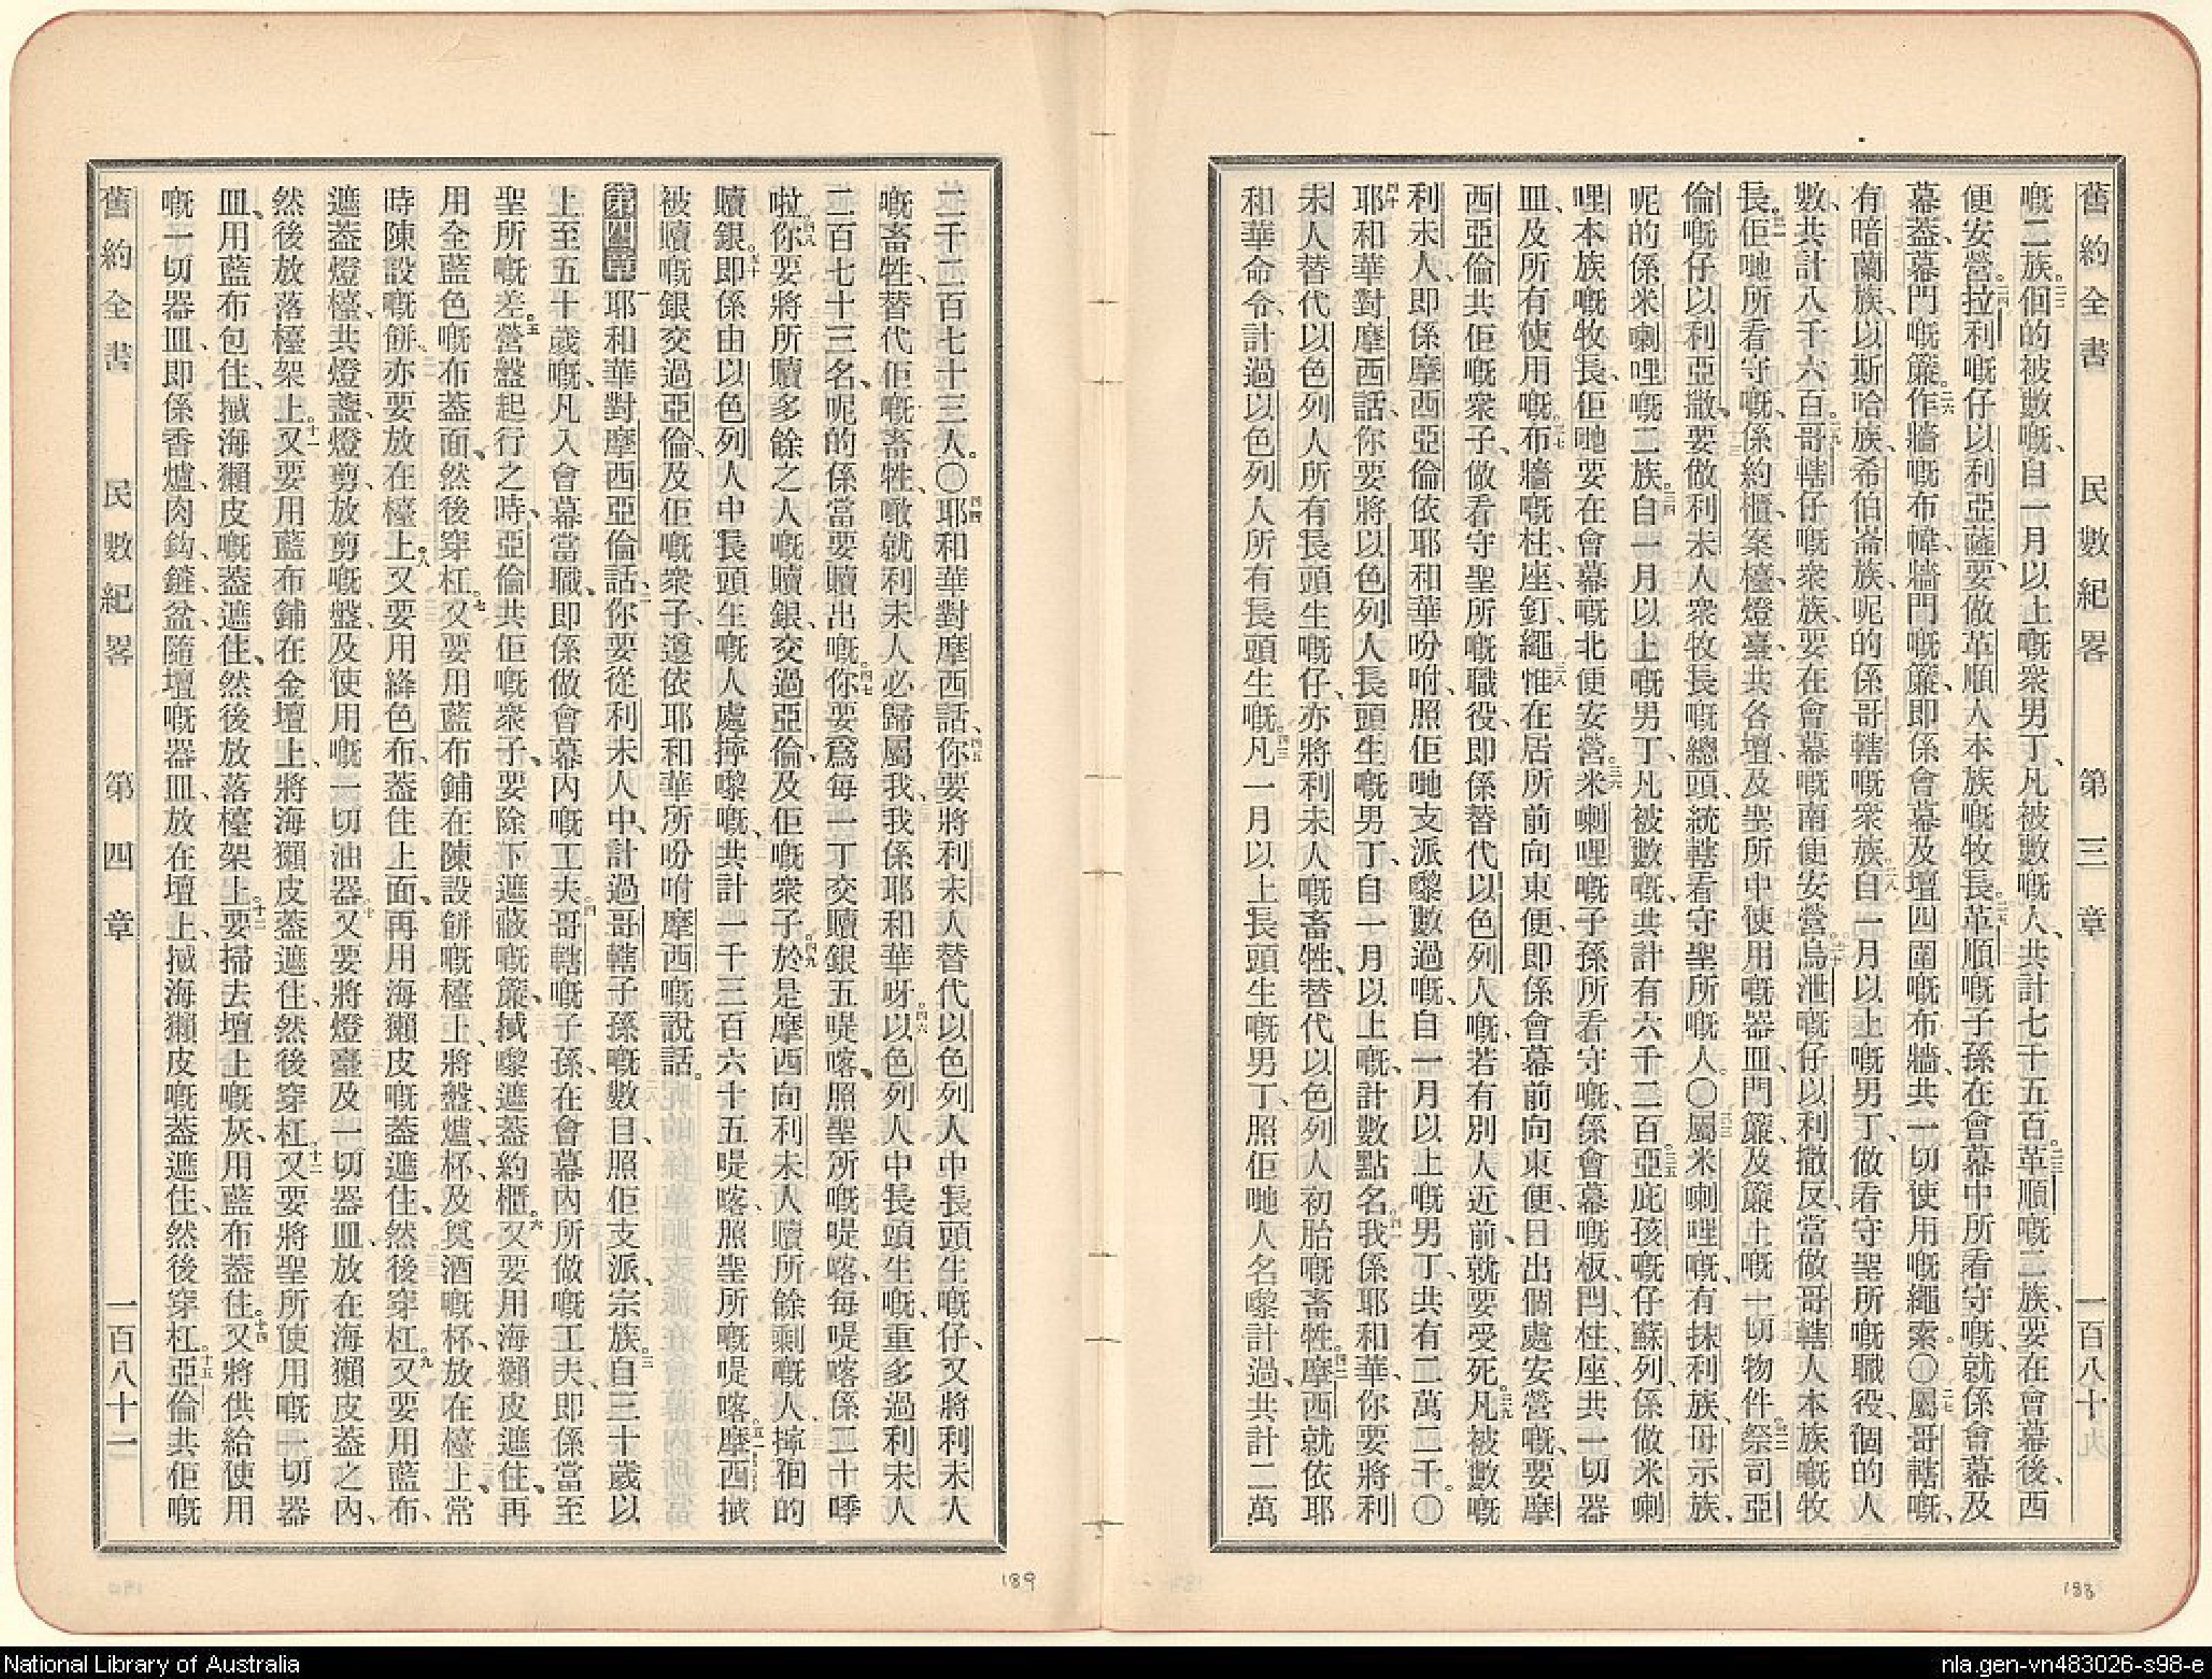 舊約全書 民數紀畧 第三章 一百八十九
嘅二族。佪的被數嘅、自一月以上嘅衆男丁、凡被數嘅人、共計七千五百。革順嘅二族、要在會幕後、西
便安營。拉利嘅仔以利亞薩、要做革順人本族嘅牧長。革順嘅子孫在會幕中所看守嘅、就係會幕及
幕蓋、幕門嘅簾。作牆嘅布幃、牆門嘅簾、即係會幕及壇四圍嘅布牆、共一切使用嘅繩索。〇屬哥轄嘅、
有暗蘭族、以斯哈族、希伯崙族、呢的係哥轄嘅衆族。自一月以上嘅男丁、做看守聖所嘅職役、個的人
數、共計八千六百。哥轄仔嘅衆族、要在會幕嘅南便安營。烏泄嘅仔以利撒反、當做哥轄人本族嘅牧
長。佢哋所看守嘅、係約櫃、案檯、燈臺、共各壇、及聖所中使用嘅器皿、門簾、及簾上嘅一切物件。祭司亞
倫嘅仔以利亞撒、要做利未人衆牧長嘅總頭、統轄看守聖所嘅人。〇屬米喇哩嘅、有抹利族、母示族、
呢的係米喇哩嘅二族。自一月以上嘅男丁、凡被數嘅、共計有六千二百。亞庇孩嘅仔蘇列、係做米喇
哩本族嘅牧長、佢哋要在會幕嘅北便安營。米喇哩嘅子孫所看守嘅、係會幕嘅板、閂、柱、座、共一切器
皿、及所有使用嘅。布牆嘅柱、座、釘、繩。惟在居所前向東便、即係會幕前向東便、日出個處安營嘅、要摩
西亞倫共佢嘅衆子、做看守聖所嘅職役、即係替代以色列人嘅、若有別人近前、就要受死。凡被數嘅
利未人、即係摩西亞倫依耶和華吩咐、照佢哋支派嚟數過嘅、自一月以上嘅男丁、共有二萬二千。〇
耶和華對摩西話、你要將以色列人長頭生嘅男丁、自一月以上嘅、計數點名。我係耶和華、你要將利
未人替代以色列人所有長頭生嘅仔、亦將利未人嘅畜牲、替代以色列人初胎嘅畜牲。摩西就依耶
和華命令、計過以色列人所有長頭生嘅。凡一月以上長頭生嘅男丁、照佢哋人名嚟計過、共計二萬
188
二千二百七十三人。〇耶和華對摩西話、你要將利未人替代以色列人中長頭生嘅仔、又將利未人
嘅畜牲、替代佢嘅畜牲、噉就利未人必歸屬我、我係耶和華呀。以色列人中長頭生嘅、重多過利未人
二百七十三名、呢的係當要贖出嘅。你要爲每一丁交贖銀五㖷喀、照聖所嘅㖷喀、每㖷喀係二十㖀
啦。你要將所贖多餘之人嘅贖銀、交過亞倫、及佢嘅衆子。於是摩西向利未人贖所餘剩嘅人、擰佪的
贖銀。即係由以色列人中長頭生嘅人處擰嚟嘅、共計一千三百六十五㖷喀、照聖所嘅㖷喀。摩西搣
被贖嘅銀交過亞倫、及佢嘅衆子、遵依耶和華所吩咐摩西嘅說話。
第四章 耶和華對摩西亞倫話、你要從利未人中、計過哥轄子孫嘅數目、照佢支派、宗族。自三十歲以
上至五十歲嘅、凡入會幕當職、即係做會幕內嘅工夫。哥轄嘅子孫、在會幕內所做嘅工夫、即係當至
聖所嘅差。營盤起行之時、亞倫共佢嘅衆子、要除下遮蔽嘅簾、搣嚟遮蓋約櫃。又要用海獺皮遮住、再
用全藍色嘅布蓋面、然後穿杠。又要用藍布鋪在陳設餅嘅檯上、將盤、爐、杯、及奠酒嘅杯、放在檯上、常
時陳設嘅餅、亦要放在檯上。又要用絳色布、蓋住上面、再用海獺皮嘅蓋遮住、然後穿杠。又要用藍布、
遮蓋燈檯、共燈盞、燈剪、放剪嘅盤、及使用嘅一切油器。又要將燈臺及一切器皿、放在海獺皮蓋之內、
然後放落檯架上。又要用藍布鋪在金壇上、將海獺皮蓋遮住、然後穿杠。又要將聖所使用嘅一切器
皿、用藍布包住、搣海獺皮嘅蓋遮住、然後放落檯架上。要掃去壇上嘅灰、用藍布蓋住。又將供給使用
嘅一切器皿、即係香爐、肉鈎、鏟、盆、隨壇嘅器皿、放在壇上、搣海獺皮嘅蓋遮住、然後穿杠。亞倫共佢嘅
舊約全書 民數紀畧 第四章 一百八十二
189
National Library of Australia
nla.gen-vn483026-s98-e